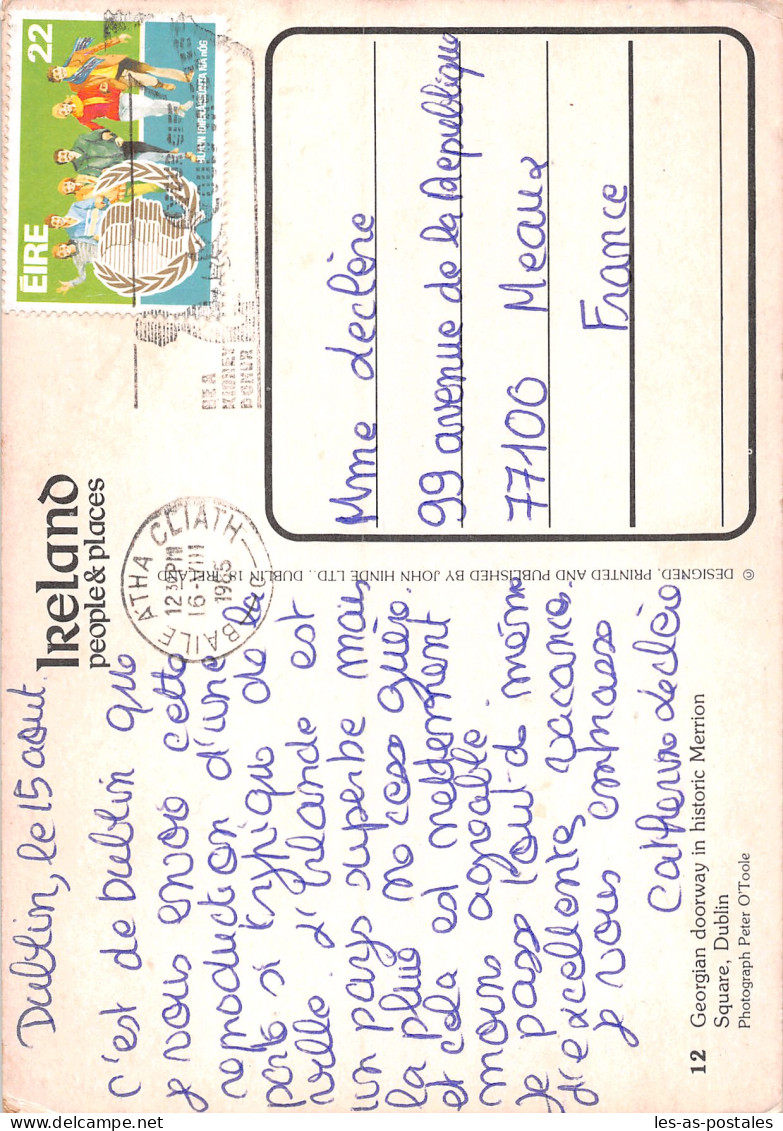 Ireland
people & places
Dublin, le 15 aout.
c'est de Dublin que
je vous envoie cette
reproduction d'une
porte si typique de la
ville. d'Irlande est
un pays superbe mais
la pluie ne cesse guère.
et cela est nettement
moins agréable.
Je passe tout de même
d'excellentes vacances.
je vous embrasse
Catherine declère
12 Georgian doorway in historic Merrion
Square, Dublin
Photograph Peter O'Toole
© DESIGNED, PRINTED AND PUBLISHED BY JOHN HINDE LTD., DUBLIN 18, IRELAND
BAILE ATHA CLIATH
12 30 PM
16-VIII
1985
BE A
KIDNEY
DONOR
ÉIRE
22
BLIAIN IDIRNÁISIÚNTA NA nÓG
Mme declère
99 avenue de la République
77100 Meaux
France
les-as-postales